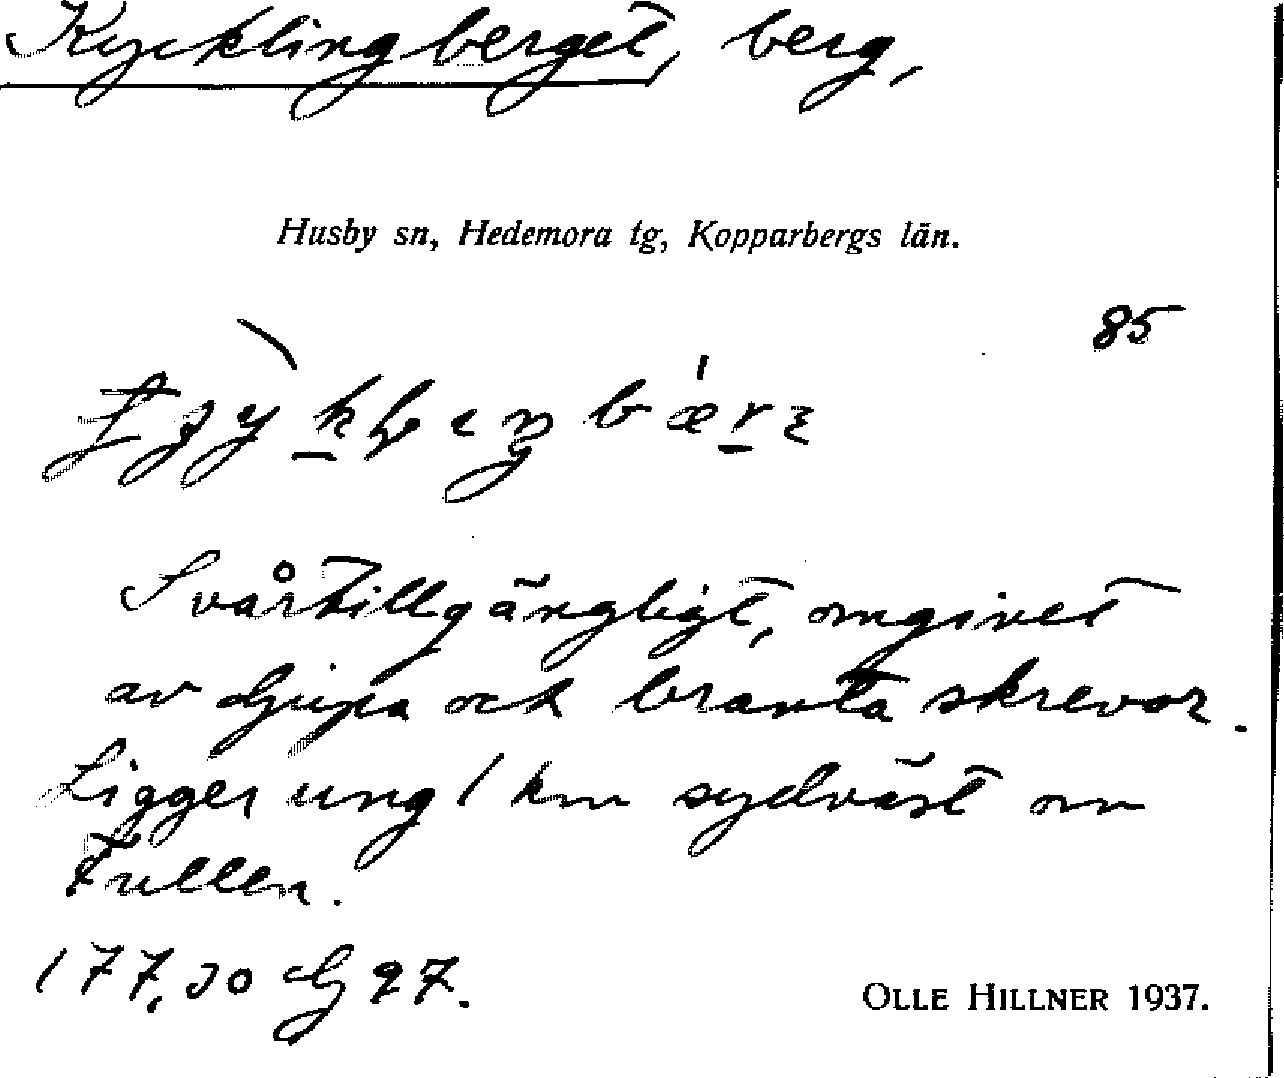 Kycklingberget, berg,
Husby sn, Hedemora tg, Kopparbergs län.
85
Svårtillgängligt, omgivet
av djupa och branta skrevor.
Ligger ung 1 km sydväst om
Trullen.
OLLE HILLNER 1937.